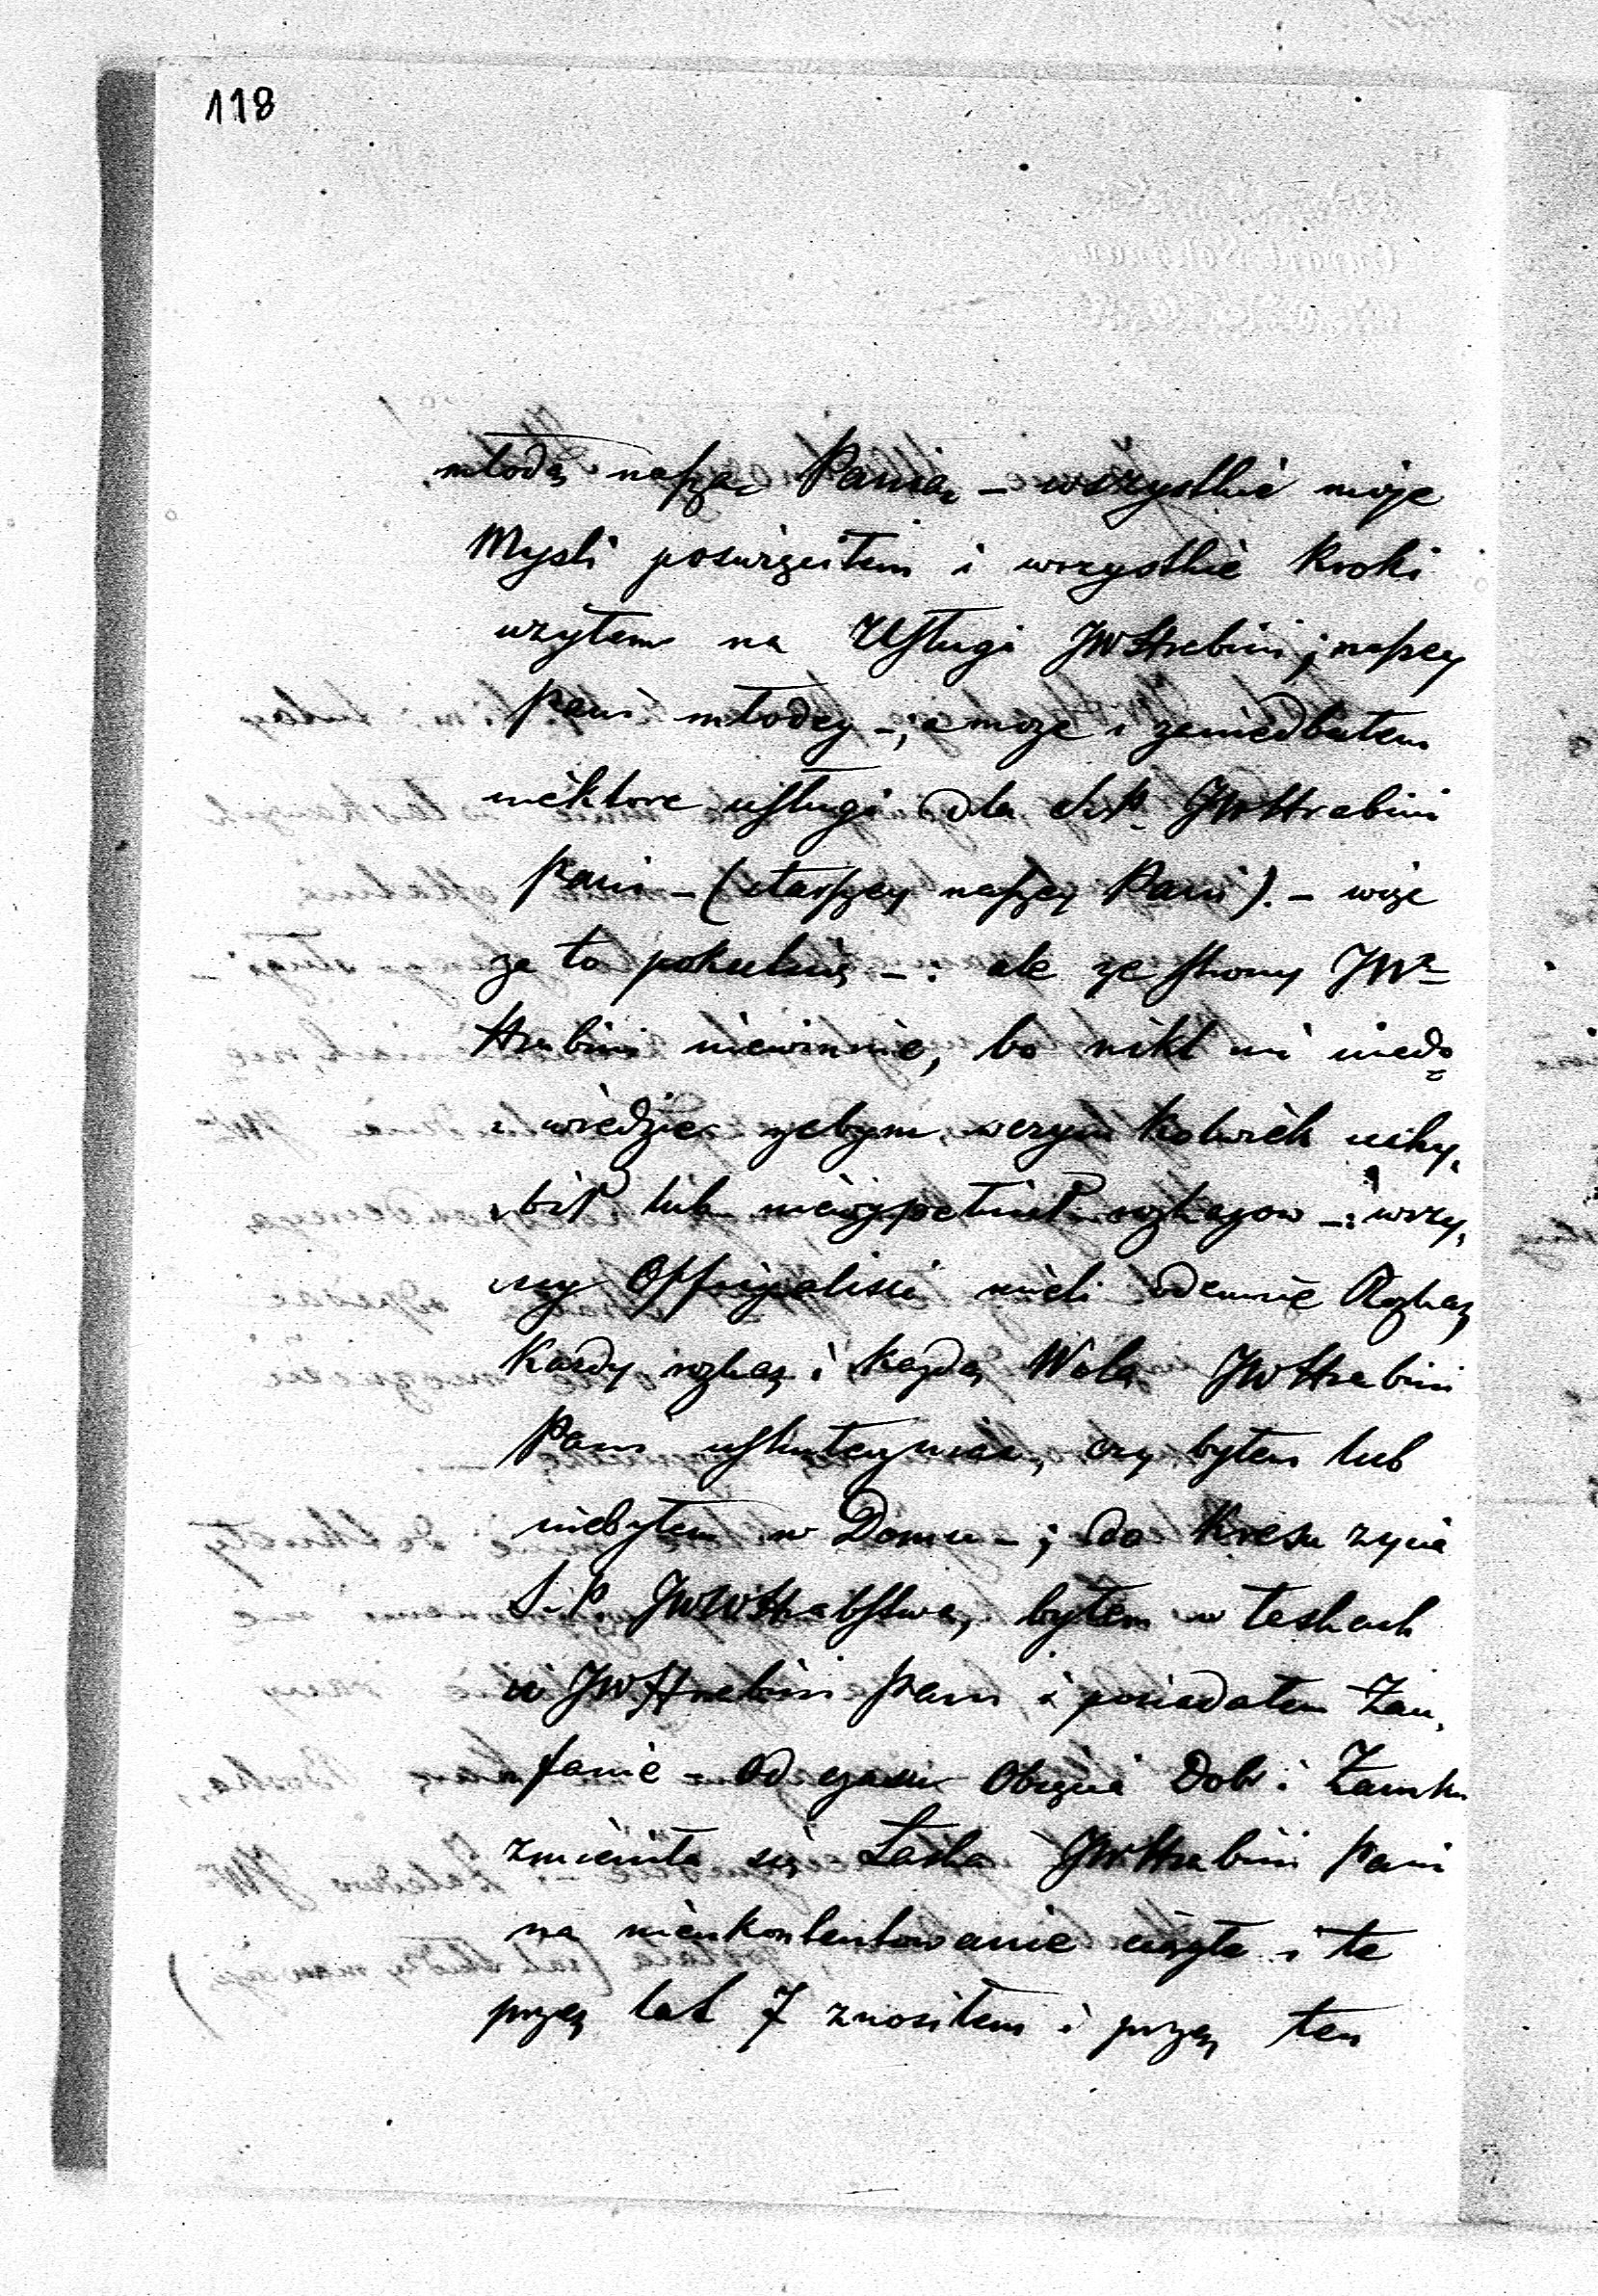 118
młodą naszą Panią – wszystkie moje
Mysli poswięciłem i wszystkie Kroki
użyłem na Usługi JWHrabini; naszey
Pani młodey –; a moze i zaniedbałem
niektore usługi dla S.P. JWHrabini
Pani – (starszey naszey Pani). – więc
za to pokutuię –: ale ze strony JWⁿ
Hrabini niewinnie, bo nikt mi niedo=
wiedzie zebym w czym kolwiek uchy,
bił lub niewypełnił rozkazow –: wszy,
scy Officyalisci mieli odemnie Rozkaz
Kazdy rozkaz i kazdą Wolą JWHrabini
Pani uskuteczniac, czy byłem lub
niebyłem w Domu –; do Kresu zycia
S.P. JWWHrabstwa, byłem w łaskach
u JWHrabini Pani i posiadałem Zau,
fanie – od czasu Obięcia Dobr i Zamku
zmieniła się Łaska JWHrabini Pani
na nieukontentowanie ciągłe i te
przez lat 7 znosiłem i przez ten